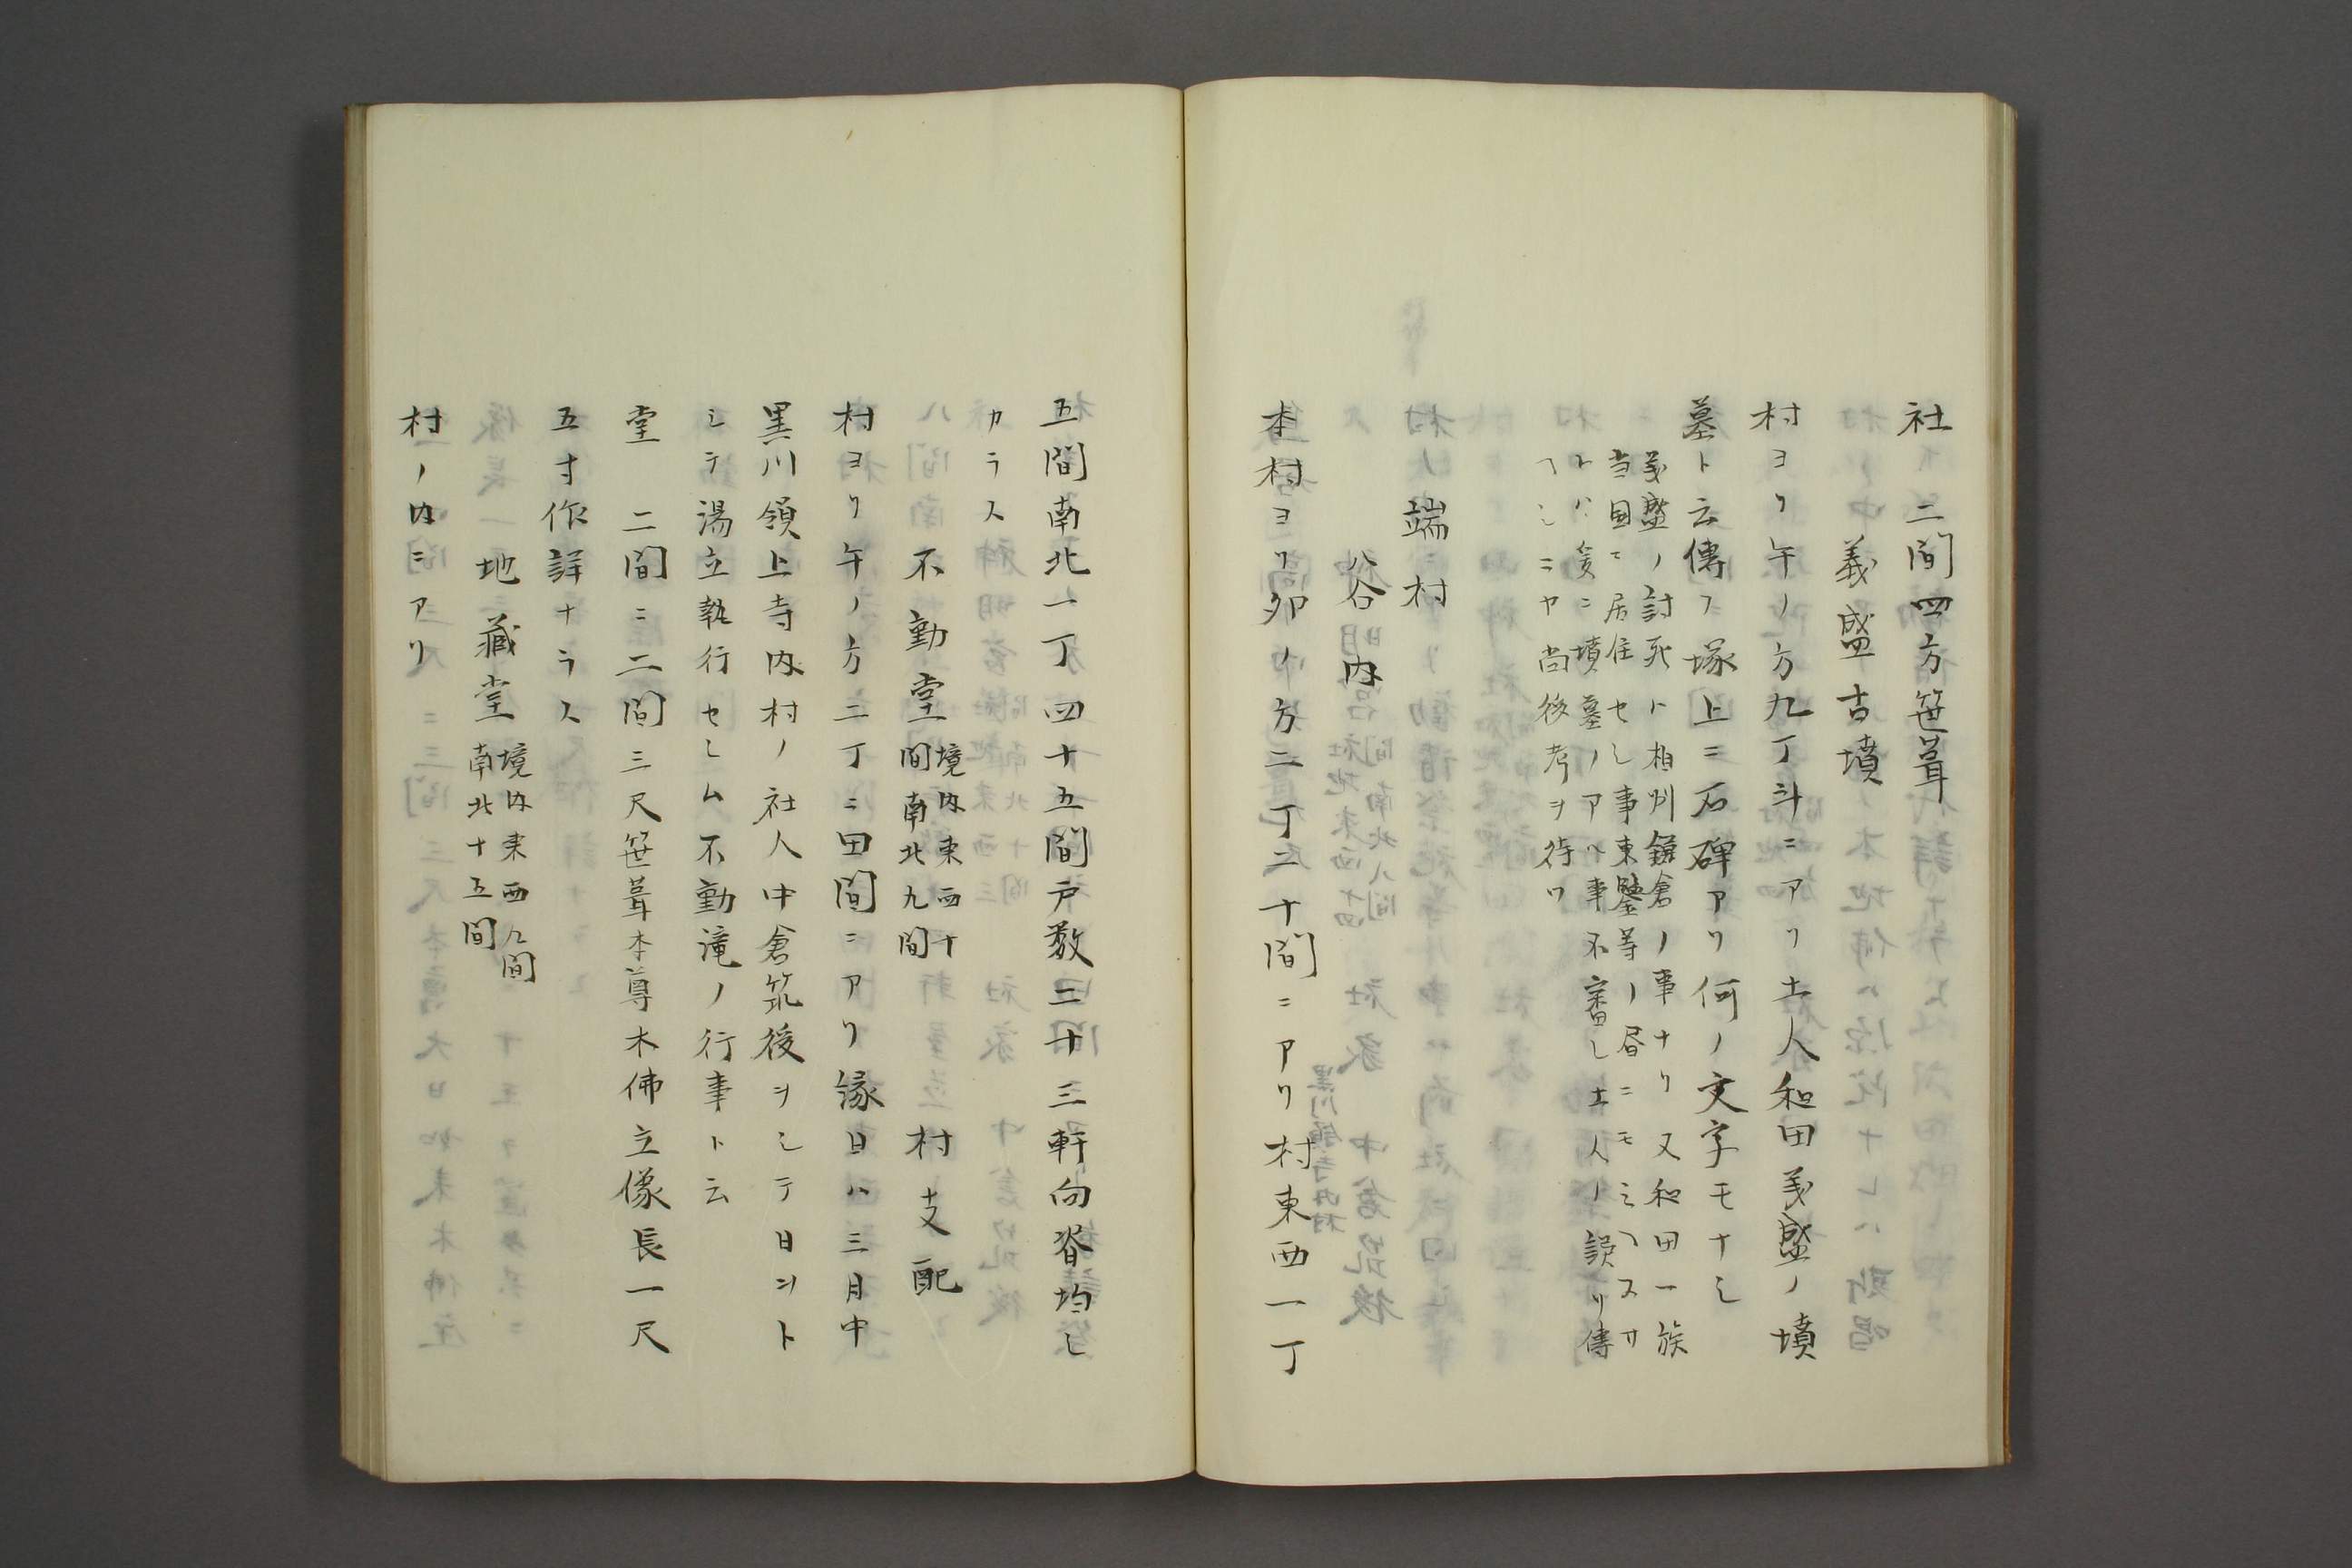 社二間四方笹葺
義盛古墳
村ヨリ午ノ方九丁斗ニアリ土人和田義盛ノ墳
墓ト云傳フ塚上ニ石碑アリ何ノ文字モナシ
義盛ノ討死ハ相州鎌倉ノ事ナリ又和田一族
当国ニ居住セシ事東鑒等ノ昼ニモミヘスサ
レハ爰ニ墳墓ノアル事不審シ土人ノ誤リ傳
ヘシニヤ尚後考ヲ待ツ
端村
谷内
本村ヨリ卯ノ方二丁二十間ニアリ村東西一丁
五間南北一丁四十五間戸数二十三軒向背均シ
カラス
不動堂 境内東西十
間南北九間 村支配
村ヨリ午ノ方二丁ニ田間ニアリ縁日ハ三月中
黒川領上寺内村ノ社人中倉筑後ヲシテ日ヲト
シテ湯立執行セシム不動滝ノ行事ト云
堂 二間ニ二間三尺笹葺本尊木佛立像長一尺
五寸作詳ナラス
地蔵堂 境内東西八間
南北十五間
村ノ内ニアリ